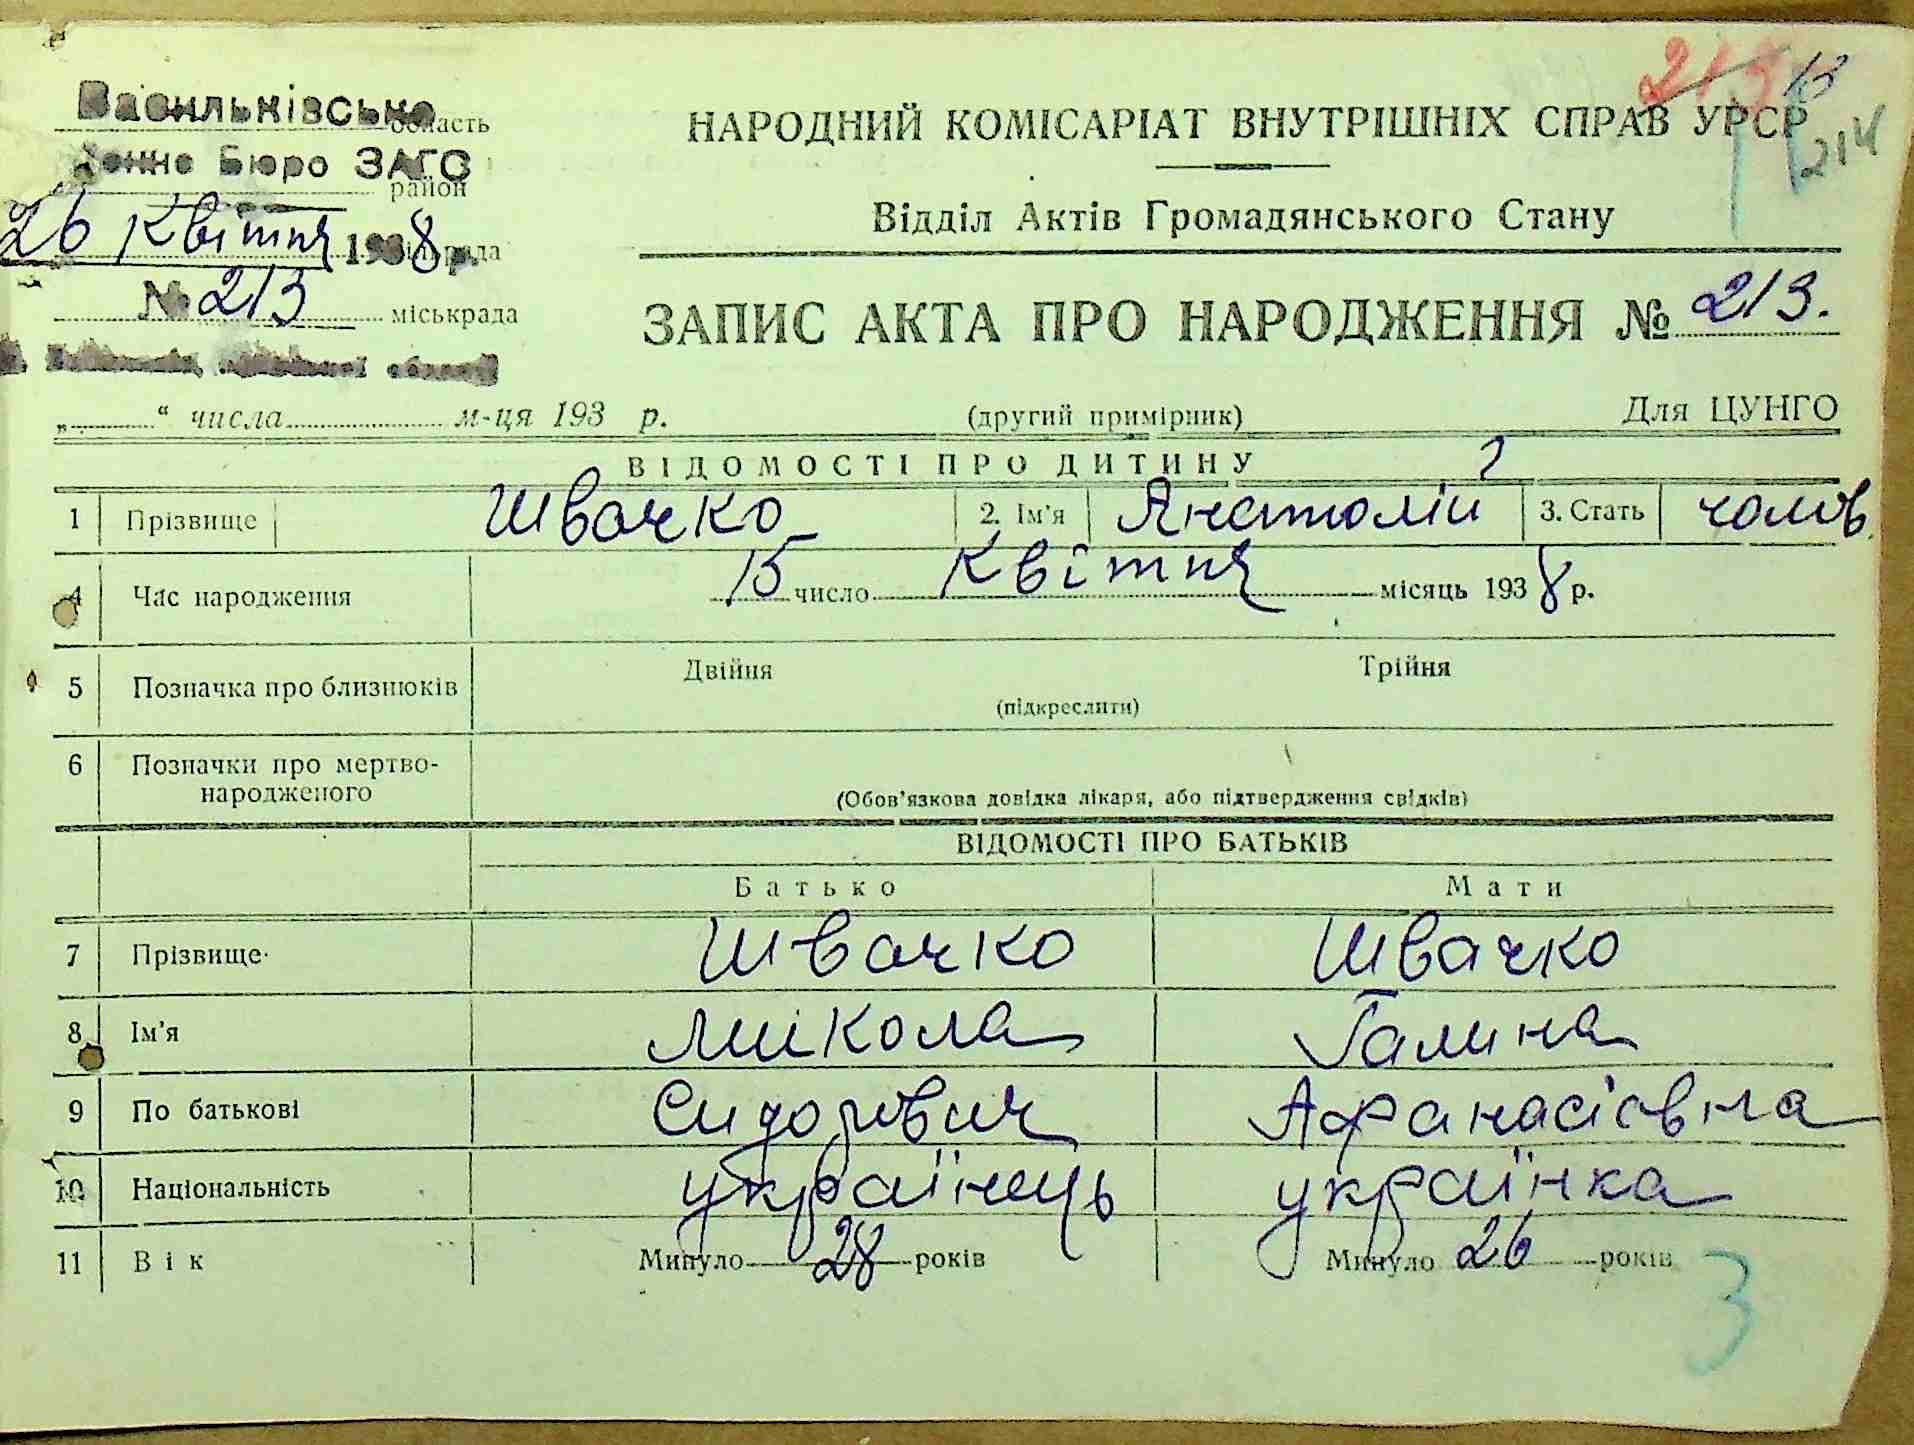 Васильківське
область
Бюро ЗАГС
район
26 Квітня 1938 р.
№ 213
міськрада
213 13
214
НАРОДНИЙ КОМІСАРІАТ ВНУТРІШНІХ СПРАВ УРСР
Відділ Актів Громадянського Стану
ЗАПИС АКТА ПРО НАРОДЖЕННЯ № 213.
„ “ числа м-ця 193 р. (другий примірник) Для ЦУНГО
ВІДОМОСТІ ПРО ДИТИНУ
1 Прізвище Швачко 2. Ім'я Анатолій 3. Стать чолов.
4 Час народження 15 число Квітня місяць 1938 р.
5 Позначка про близнюків Двійня Трійня
(підкреслити)
6 Позначки про мертво-
народженого
(Обов'язкова довідка лікаря, або підтвердження свідків)
ВІДОМОСТІ ПРО БАТЬКІВ
Батько Мати
7 Прізвище Швачко Швачко
8 Ім'я Микола Галина
9 По батькові Сидорович Афанасієвна
10 Національність українець українка
11 Вік Минуло 28 років Минуло 26 років
3